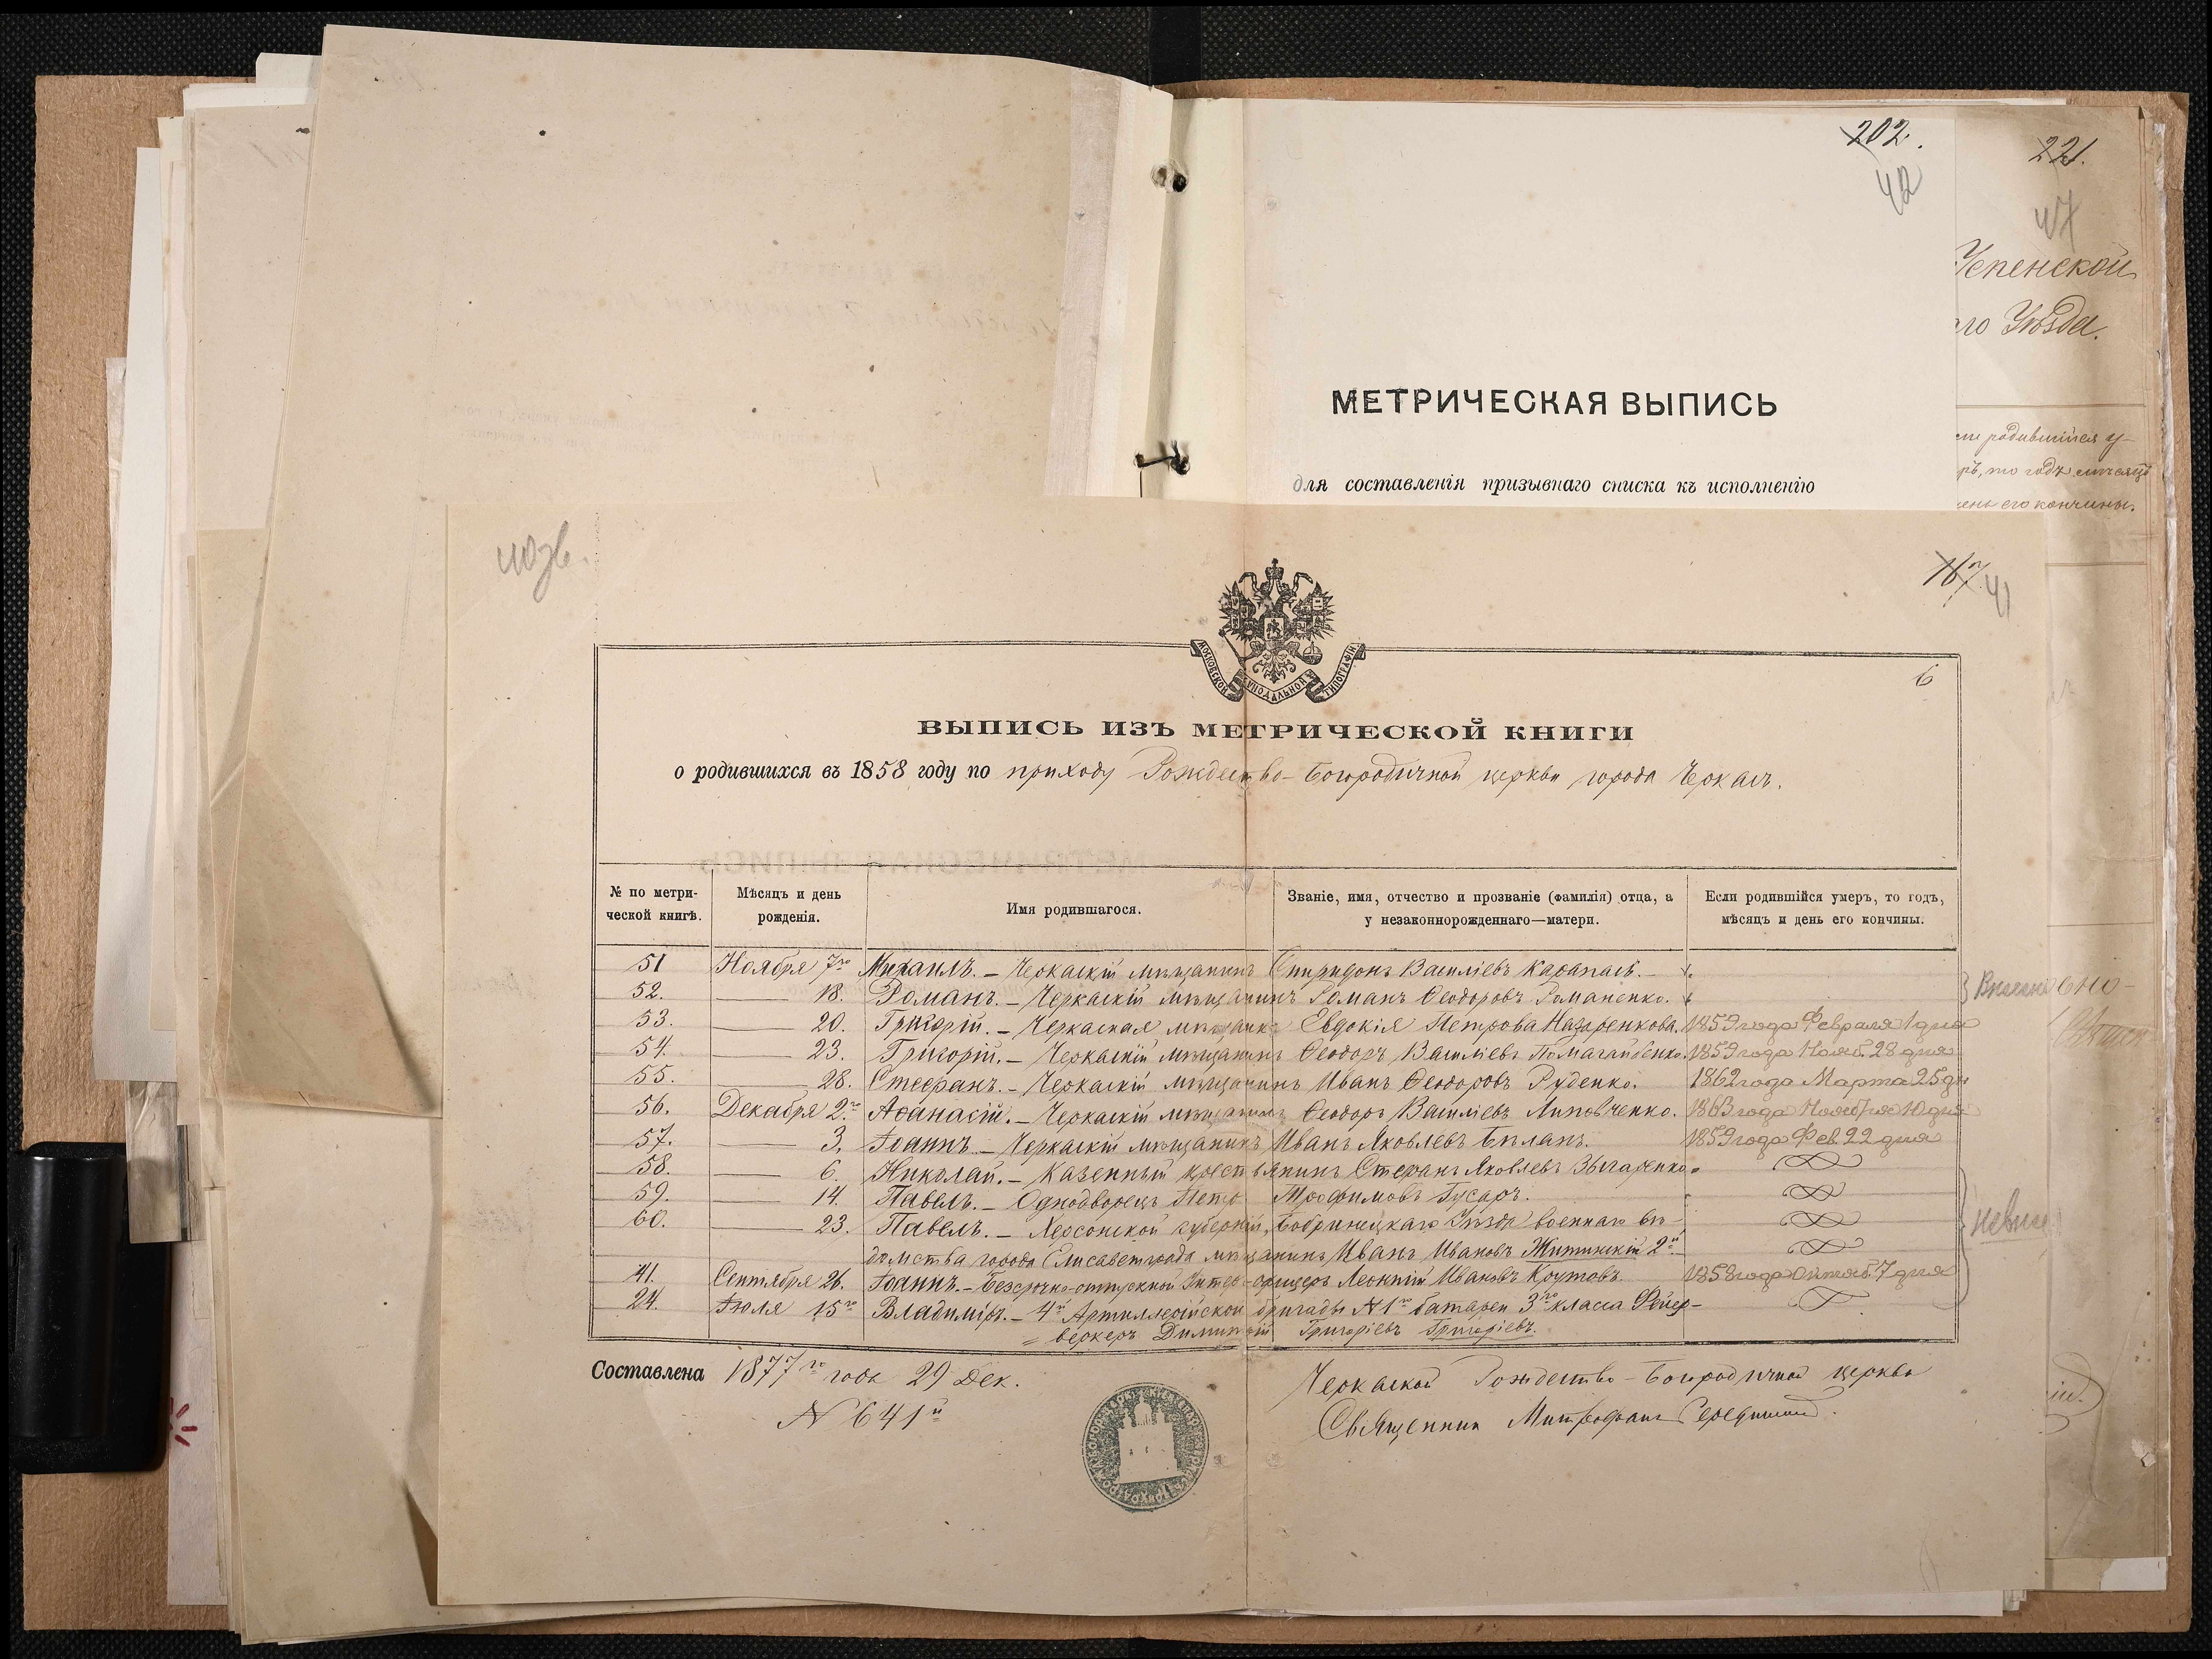 202.
42
221.
47
Успенской
го Уѣзда.
МЕТРИЧЕСКАЯ ВЫПИСЬ
для составленія призывнаго списка къ исполненію
ли родившійся у-
ръ, то годъ мѣсяцъ
день его кончины.
167.
41
МОСКОВСКОЙ СИНОДАЛЬНОЙ ТИПОГРАФІИ
6
ВЫПИСЬ ИЗЪ МЕТРИЧЕСКОЙ КНИГИ
о родившихся въ 1858 году по приходу Рождество-Богородичной церкви города Черкасъ.
№ по метри-ческой книгѣ. Мѣсяцъ и день рожденія. Имя родившагося. Званіе, имя, отчество и прозваніе (фамилія) отца, а у незаконнорожденнаго—матери. Если родившійся умеръ, то годъ, мѣсяцъ и день его кончины.
51 Ноября 7го Михаилъ. — Черкаскій мѣщанинъ Спиридонъ Василіевъ Карапасъ. —
52. 18. Романъ. — Черкаскій мѣщанинъ Романъ Ѳеодоровъ Романенко.
53. 20. Григорій. — Черкаская мѣщанка Евдокія Петрова Назаренкова. 1859 года Февраля 1 дня
54. 23. Григорій. — Черкаскій мѣщанинъ Ѳеодоръ Василіевъ Помагайбенко. 1859 года Нояб. 28 дня
55. 28. Стефанъ. — Черкаскій мѣщанинъ Иванъ Ѳеодоровъ Руденко. 1862 года Марта 25 дн
56. Декабря 2го Аѳанасій. — Черкаскій мѣщанинъ Ѳеодоръ Василіевъ Липовченко. 1863 года Ноября 10 дня
57. 3. Іоаннъ. — Черкаскій мѣщанинъ Иванъ Яковлевъ Бѣланъ. 1859 года Фев. 22 дня
58. 6. Николай. — Казенный крестьянинъ Стефанъ Яковлевъ
59. 14. Павелъ. — Однодворецъ Петръ Трофимовъ Гусаръ.
60. 23. Павелъ. — Херсонской губерніи, Бобринецкаго Уѣзда военнаго вѣ-
домства города Елисаветграда мѣщанинъ Иванъ Ивановъ Житинскій 2й
41. Сентября 26. Іоаннъ. — Безсрочно-отпускной Унтеръ-офицеръ Леонтій Ивановъ Крутовъ. 1858 года Октяб. 7 дня
24. Іюля 15го Владиміръ. — 4й Артиллерійской бригады № 1го батареи 3го класса Фейер-
= веркеръ Димитрій Григоріевъ Григоріевъ.
Составлена 1877го года 29 Дек.
№ 641й
Черкаской Рождество-Богородичной церкви
Священник Митрофанъ